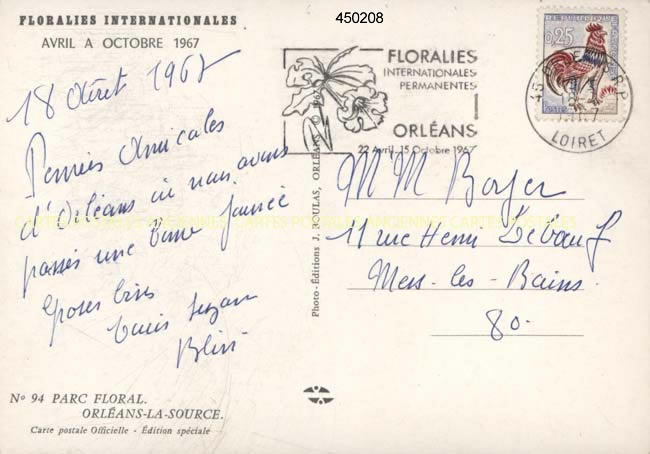 450208
FLORALIES INTERNATIONALES
AVRIL A OCTOBRE 1967
18 Août 1967
Pensées Amicales
d'Orléans où nous avons
passés une bonne journée
Louis Suzan
FLORALIES
INTERNATIONALES
PERMANENTES
ORLÉANS
22 Avril. 15 Octobre 1967
0,25
POSTES
45
R.P.
LOIRET
M M Boyer
11 rue Henri Débœuf
Mers-les-Bains.
80.
Photo-Éditions J. BOULAS, ORLÉANS © 1967
CARTES POSTALES ANCIENNES CARTES POSTALES
Nº 94 PARC FLORAL.
ORLÉANS-LA-SOURCE.
Carte postale Officielle - Édition spéciale